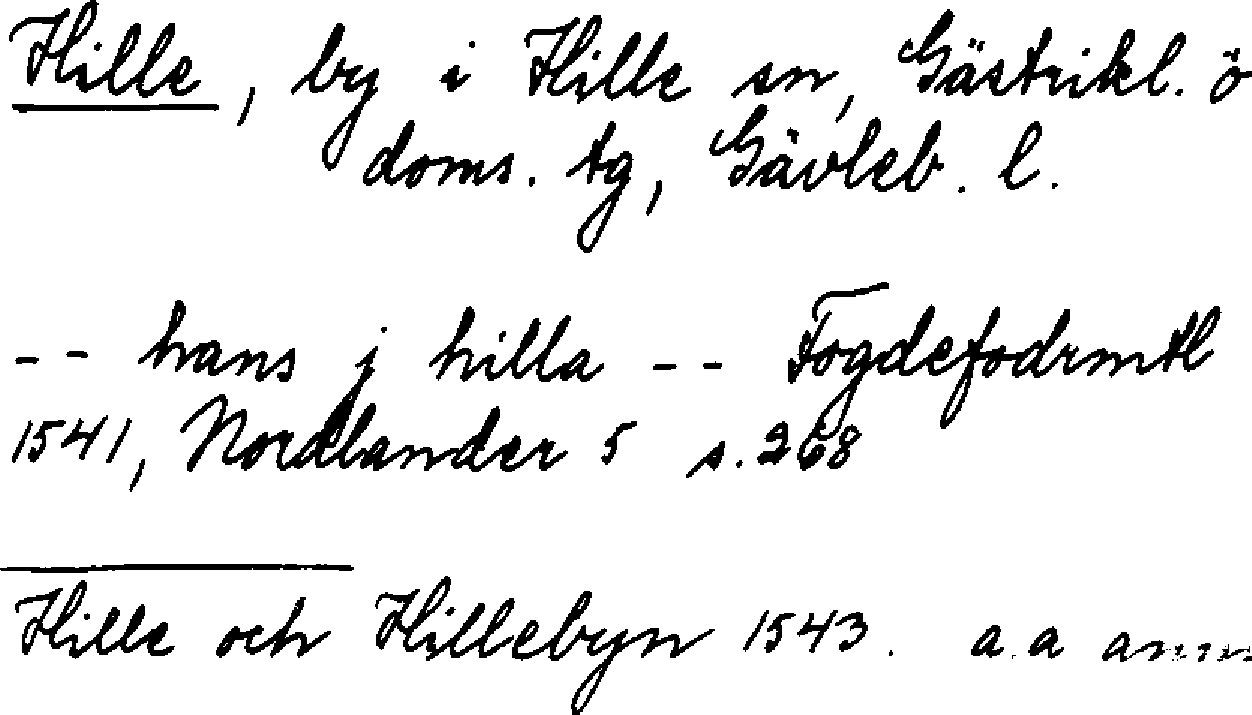 Hille, by i Hille sn, Gästrikl. ö
doms. tg, Gävleb. l.
-- hans j hilla -- Fogdefodrmtl
1541, Nordlander 5 s. 268
Hille och Hillebyn 1543. a.a anm